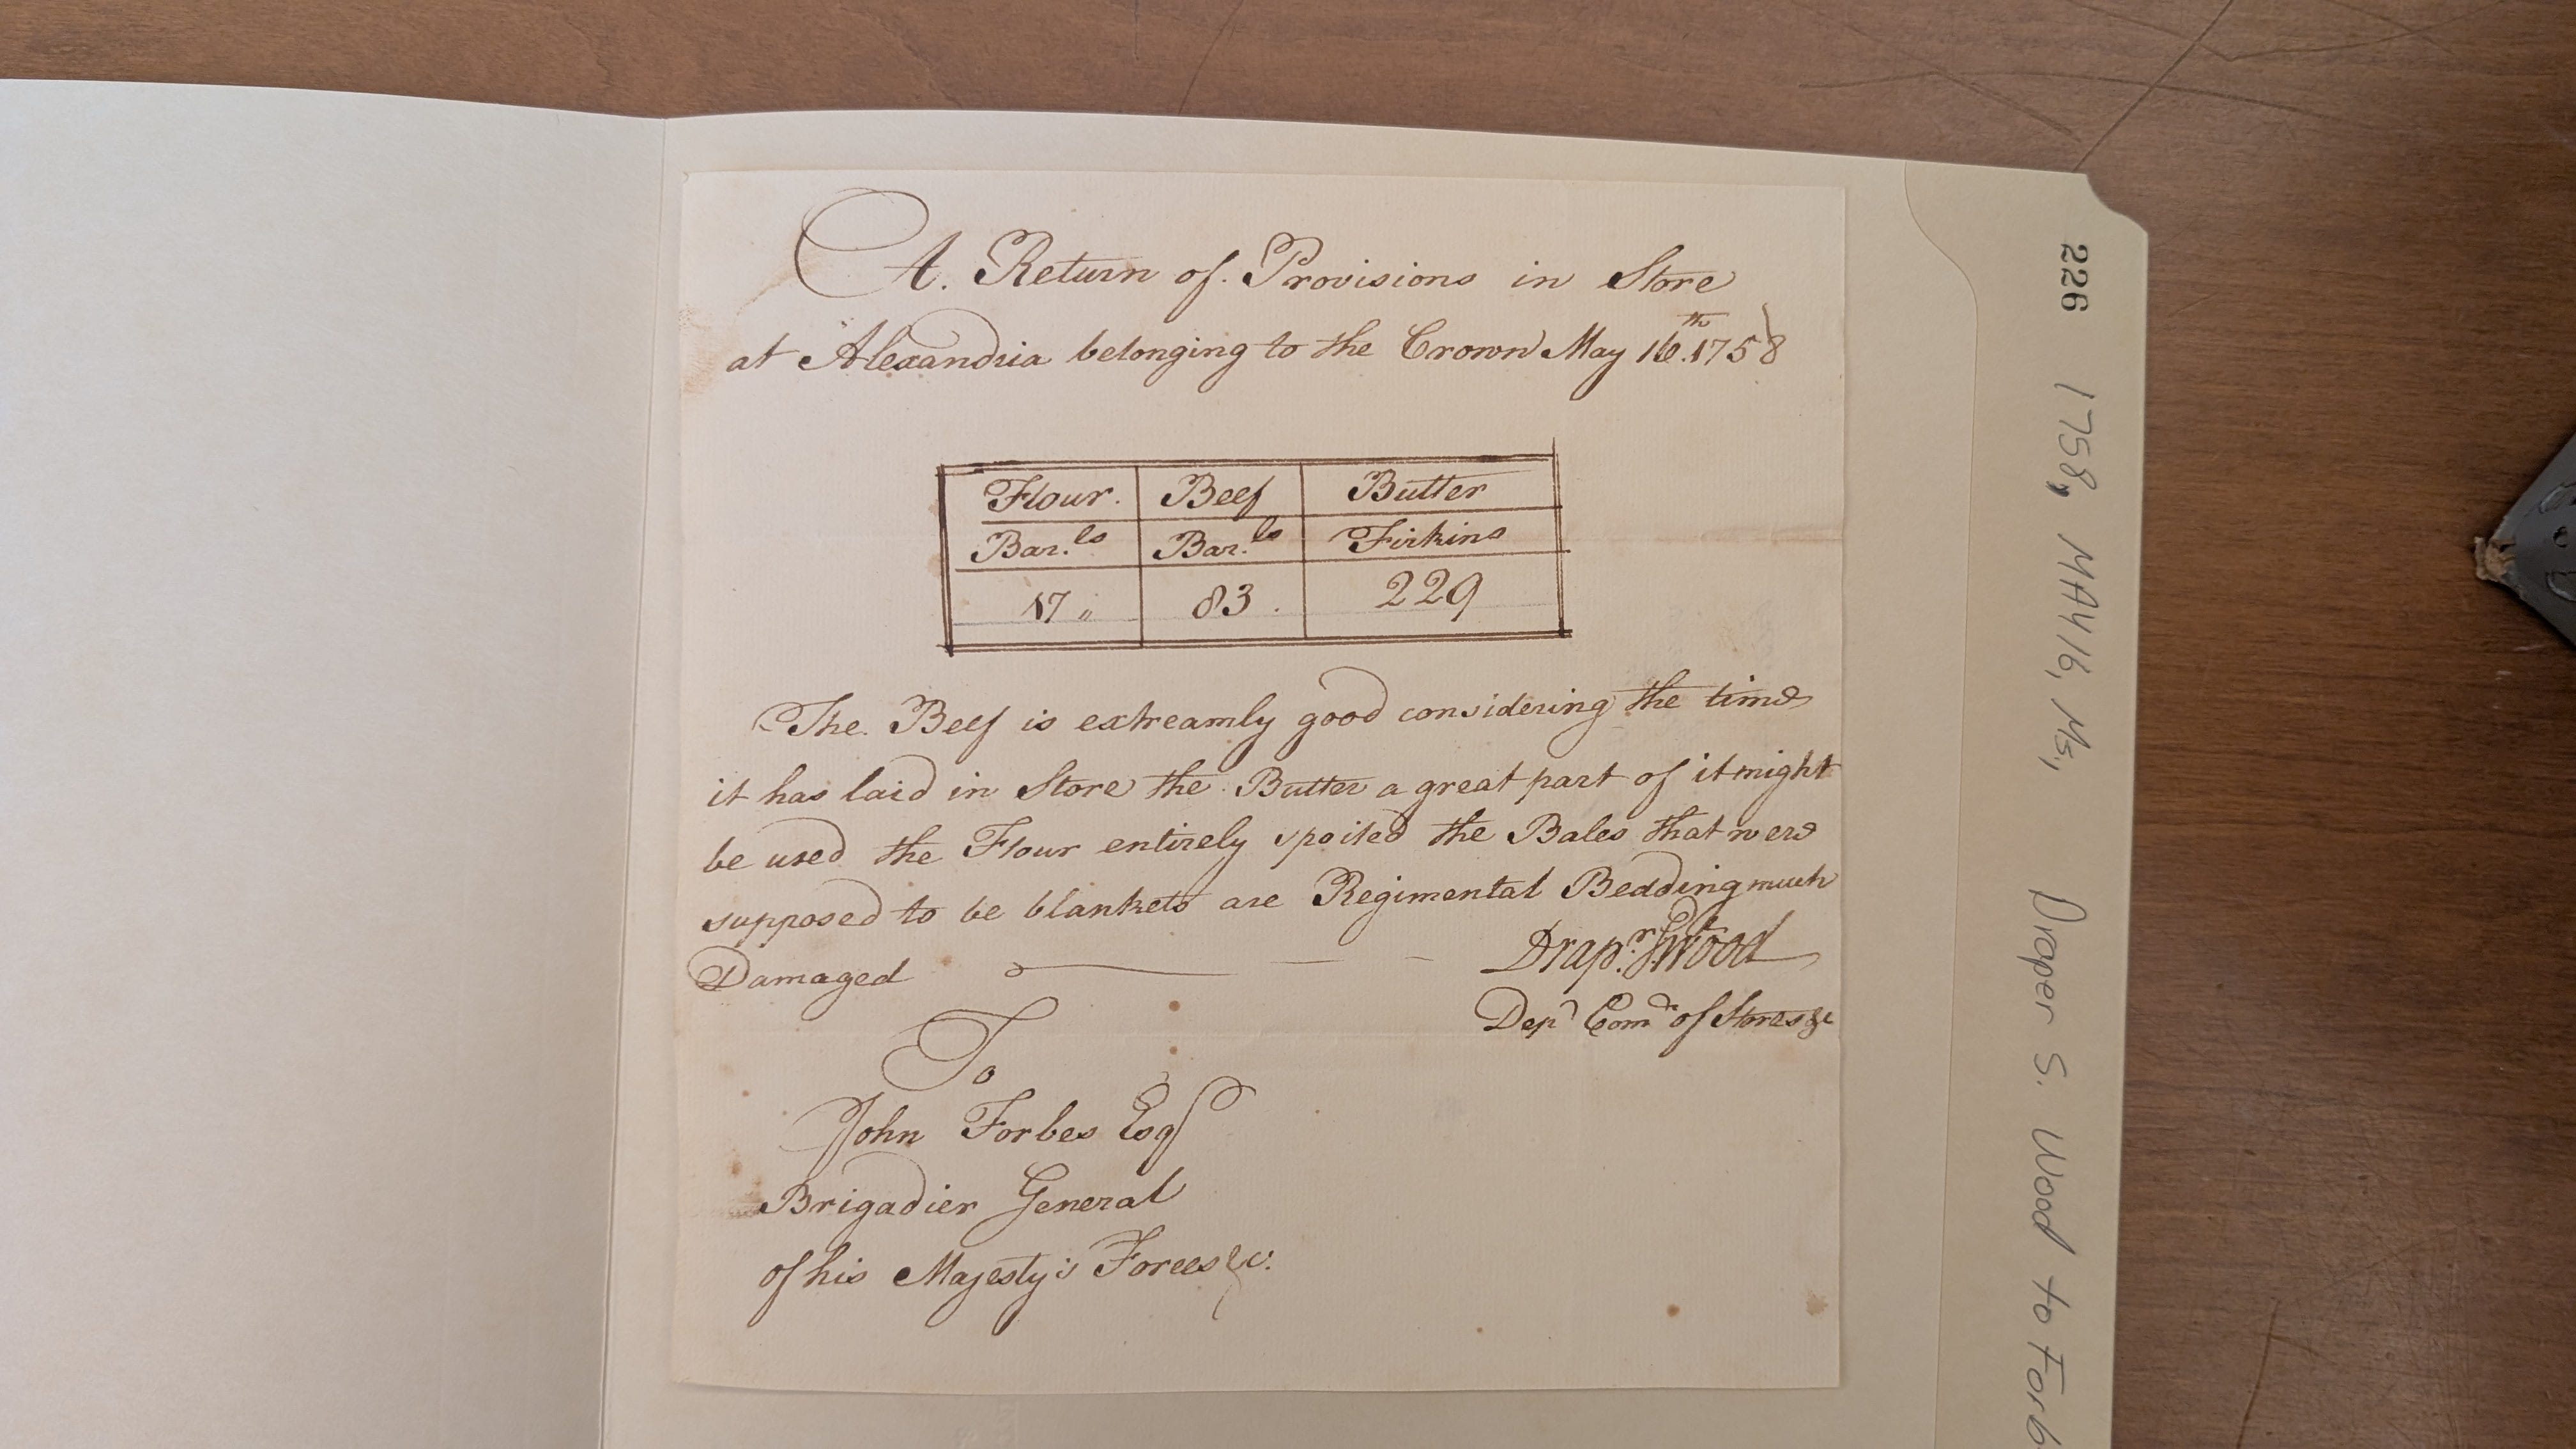 A. Return of Provisions in Store
at Alexandria belonging to the Crown May 16.th 1758
Flour. Beef Butter
Bar.ls Bar.ls Firkins
17 " 83. 229
The Beef is extreamly good considering the time
it has laid in Store the Butter a great part of it might
be used the Flour entirely spoiled the Bales that were
supposed to be blankets are Regimental Bedding much
Damaged
Drap.r S. Wood
Depy Comy of Stores &c
To
John Forbes Esqr
Brigadier General
of his Majesty's Forces &c.
226 1758, MAY 16, Ms, Draper S. Wood to Forb